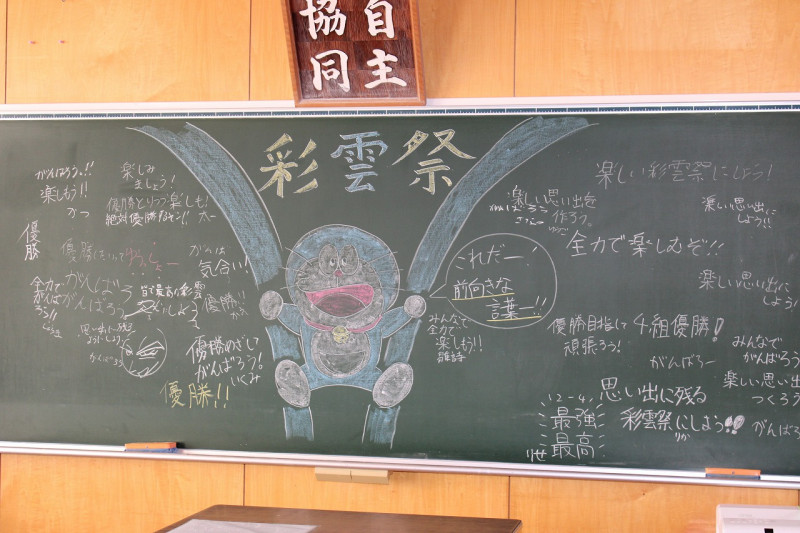 自主
協同
彩雲祭
がんばろう!!
楽しもう!!
楽しみ
ましょう!
優勝とりつつ楽しも!
絶対優勝するゾン!! 太一
優勝
気合い!
全力で
がんばろう!!
がんばろう
がんばろう
思い出に残る
ようにしよう!
がんばろう
優勝めざして
がんばろう。
いくみ
優勝!!
これだー!
前向きな
言葉ー!!
みんなで
全力で
楽しもう!!
楽しい思い出を
作ろう。
全力で楽しむぞ!!
楽しい彩雲祭にしよう!
楽しい思い出に
しよう!!
楽しい思い出に
しよう!
優勝目指して
頑張ろう!
4組優勝!
がんばろー
みんなで
がんばろう
楽しい思い出
つくろう
12-4
最強
最高
思い出に残る
彩雲祭にしよう
りか
がんばろ